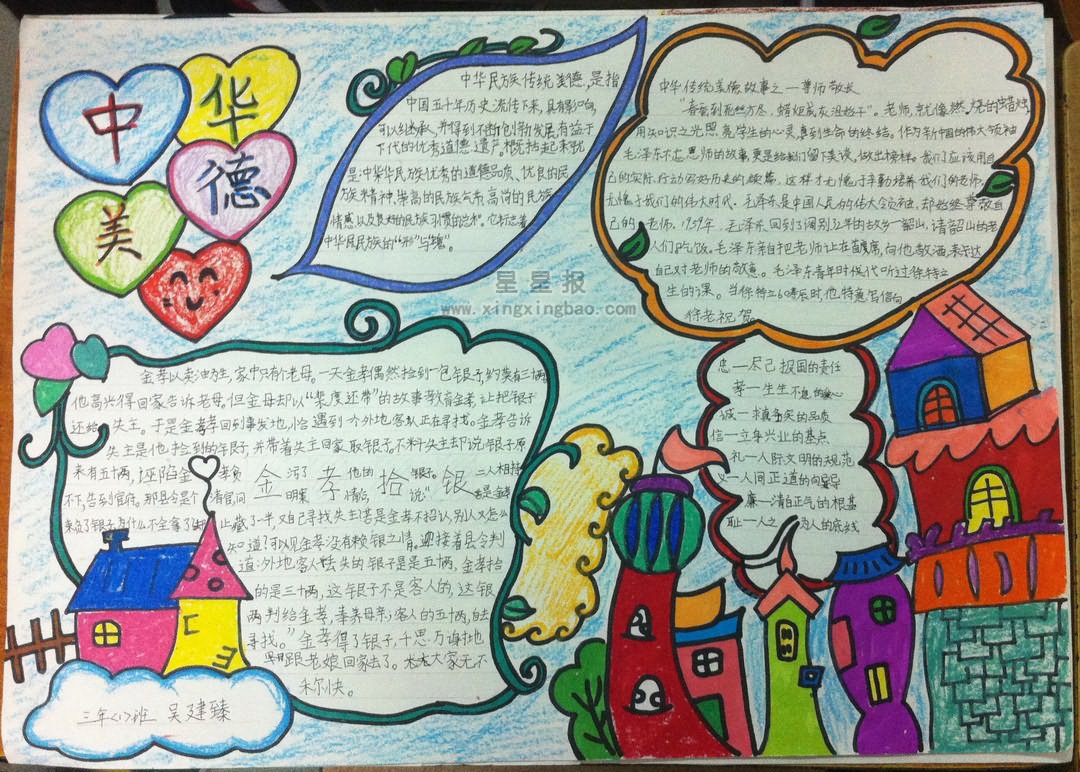 中
华
美
德
中华民族传统美德,是指
中国五千年历史流传下来,具有影响,
可以继承,并得到不断创新发展,有益于
下代的优秀道德遗产。概括起来就
是中华民族优秀的道德品质、优良的民
族精神、崇高的民族气节、高尚的民族
情感以及良好的民族习惯的总和。它标志着
中华民族的“形”与“魂”。
中华传统美德故事之一尊师敬长
“春蚕到死丝方尽,蜡炬成灰泪始干”。老师,就像燃烧的蜡烛,
用知识之光照亮学生的心灵,直到生命的终结。作为新中国的伟大领袖
毛泽东不忘恩师的故事,更是给我们留下美谈,做出榜样。我们应该用自
己的实际行动写好历史的续篇,这样才无愧于辛勤培养我们的老师,
无愧于我们的伟大时代。毛泽东是中国人民的伟大领袖,却始终尊敬自
己的老师。1959年,毛泽东回到了阔别32年的故乡——韶山,请韶山的老
人们吃饭。毛泽东亲自把老师让在首席,向他敬酒,表达
自己对老师的敬意。毛泽东青年时候代听过徐特立
生的课。当徐特立60寿辰时,他特意写信向
徐老祝贺。
星星报
www.xingxingbao.com
金孝以卖油为生,家中只有个老母。一天金孝偶然捡到一包银子,约莫有三十两
他高兴得回家告诉老母。但金母却以“裴度还带”的故事教育金孝,让把银子
还给失主。于是金孝孝回到事发地,恰遇到一个外地客人正在寻找。金孝告诉
失主是他拾到的银子,并带着失主回家取银子。不料失主却说银子原
来有五十两,诬陷金孝
不下,告到官府。那县令是个清官问
金孝拾银
知道?可以见金孝没有赖银之情。迎接着县令判
道:外地客人丢失的银子是是五十两,金孝拾
的是三十两,这银子不是客人的,这银
两判给金孝,奉养母亲;客人的五十两,自去
寻找。”金孝得了银子,千恩万谢地
跟老娘回家去了。大家无不
称快。
忠一尽己报国的责任
孝一生生不息的爱心
诚一求真务实的品质
信一立身兴业的基点
礼一人际文明的规范
义一人间正道的向导
廉一清白正气的根基
耻一人之为人的底线
三年<1>班 吴建臻